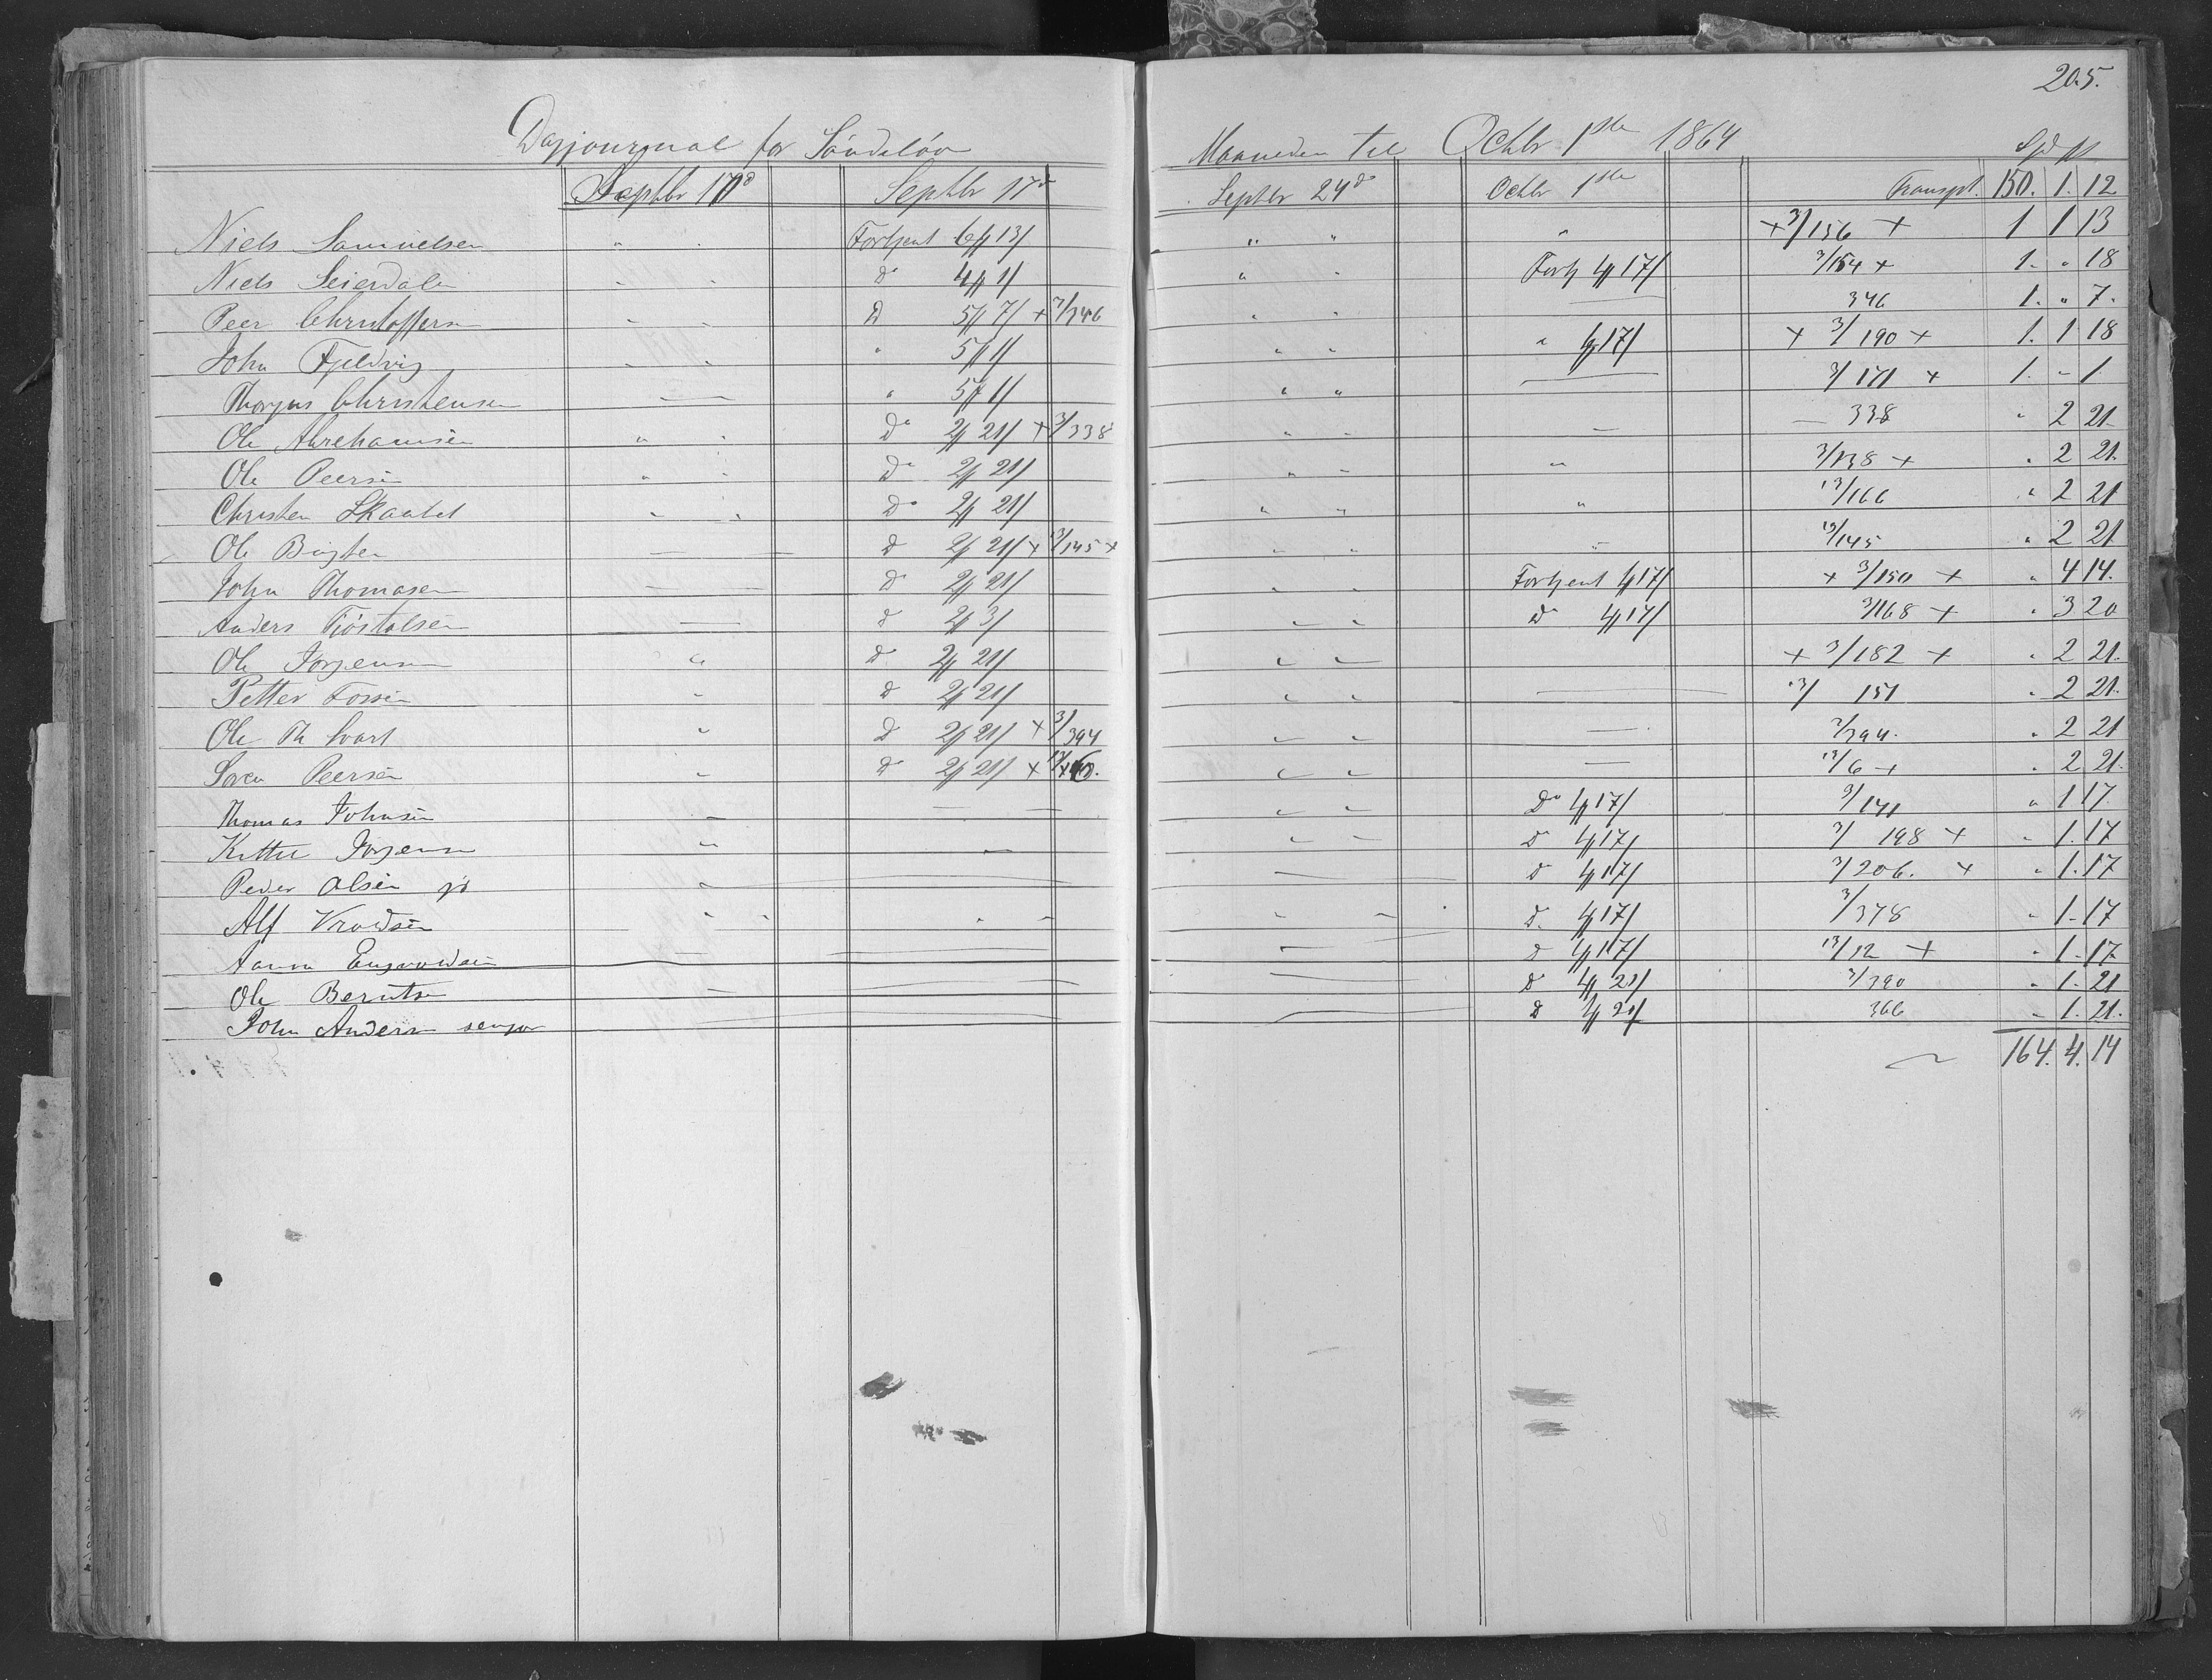 205.
Dagjournal for Søndeløv Maaneden til Octbr 1ste 1864
Spd
Septbr 17d Septbr 17d Septbr 24d Octbr 1ste Transpt. 150. 1. 12
Niels Samuelsen " Fortjent 6 13/ " " " +3/156 + 1 1 13
Niels Seierdalen " Do 4 1/ " " Fortj 4 17/ 3/154 + 1. " 18
Peer Christoffersen " D 5 7/ + 3/346 " " — 346 1. " 7.
John Fjeldvig " " 5 1/ " " " 17/ + 3/190 + 1. 1 18
Thorjus Christensen — — " 5 1/ " " — 3/171 + 1. " 1
Ole Abrehamsen " Do 2 21/ + 3/338 " " — 338 " 2 21
Ole Peersen " Do 2 21/ " " " 3/138 + " 2 21.
Christen Skaatet " Do 2 21/ " " " 13/166 " 2 21
Ole — — D 2 21/ + 13/145 + " " " 13/145 " 2 21
John Thomasen — — D 2 21/ " " Fortjent 17/ + 3/150 + " 4 14.
Anders Tjøstolsen — D 2 3/ " " D 17/ 3/168 + " 3 20
Ole Jørgensen " D 2 21/ " " + 3/182 + " 2 21.
Petter Fossen " D 2 21/ " " — 13/151 " 2 21.
Ole Th Svart " D 2 21/ + 3/394 " " — 3/394. " 2 21
Søren Peersen " D 2 21/ + 13/6. " " — 13/6 + " 2 21.
Thomas Johnsen — — — " " Do 17/ 3/141 " 1 17
Kittel Jørgensen " — " " D 17/ 3/198 + " 1. 17
Peder Olsen " — — D 17/ 3/206. + " 1. 17
Alf " " " " D. 17/ 3/378 " 1. 17
Aanon — — — D 17/ 13/12 + " 1. 17
Ole Berntsen — — — D 21/ 3/390 " 1. 21
John Andersen senjor — — D 21/ 366 " 1. 21.
164. 4. 14